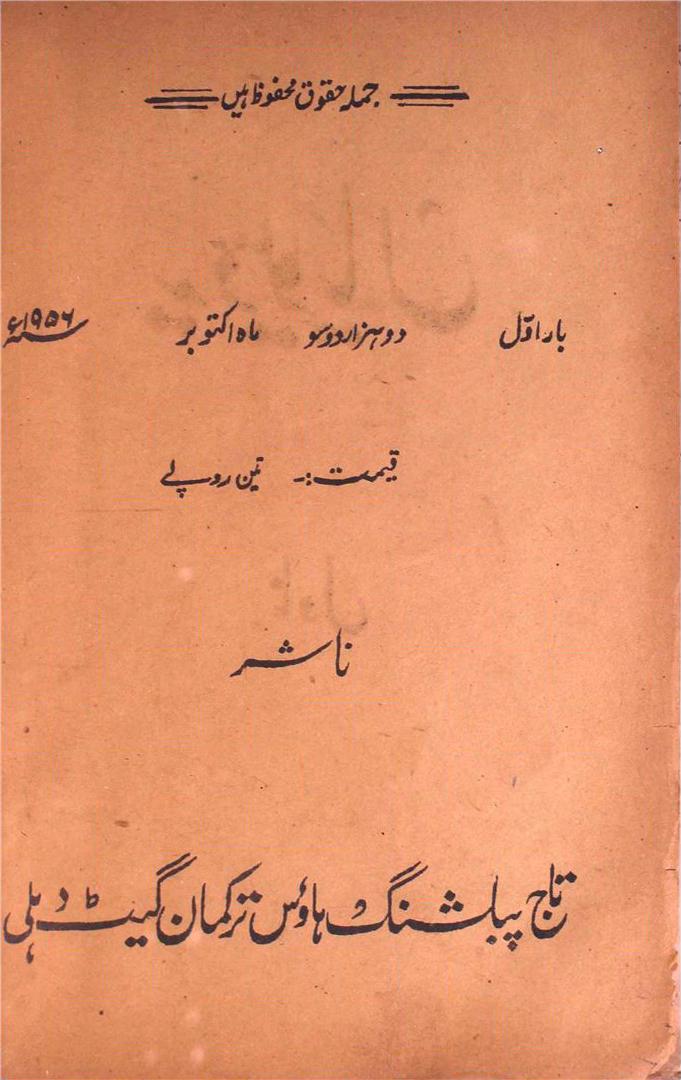 جملہ حقوق محفوظ ہیں
بار اوّل دو ہزار دو سو ماہ اکتوبر سنہ ۱۹۵۶ء
قیمت :- تین روپے
ناشر
تاج پبلشنگ ہاؤس ترکمان گیٹ دہلی